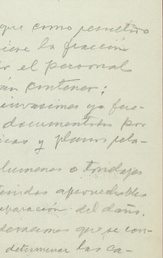 que como penetró
tiene la fracción
or el personal
án contener;
ervaciones ya fue-
documentadas por
icas y planos pela-
lúmenes o tondajes
enidas aprovechables
eparación del daño.
ideramos que se con-
determinar las ca-